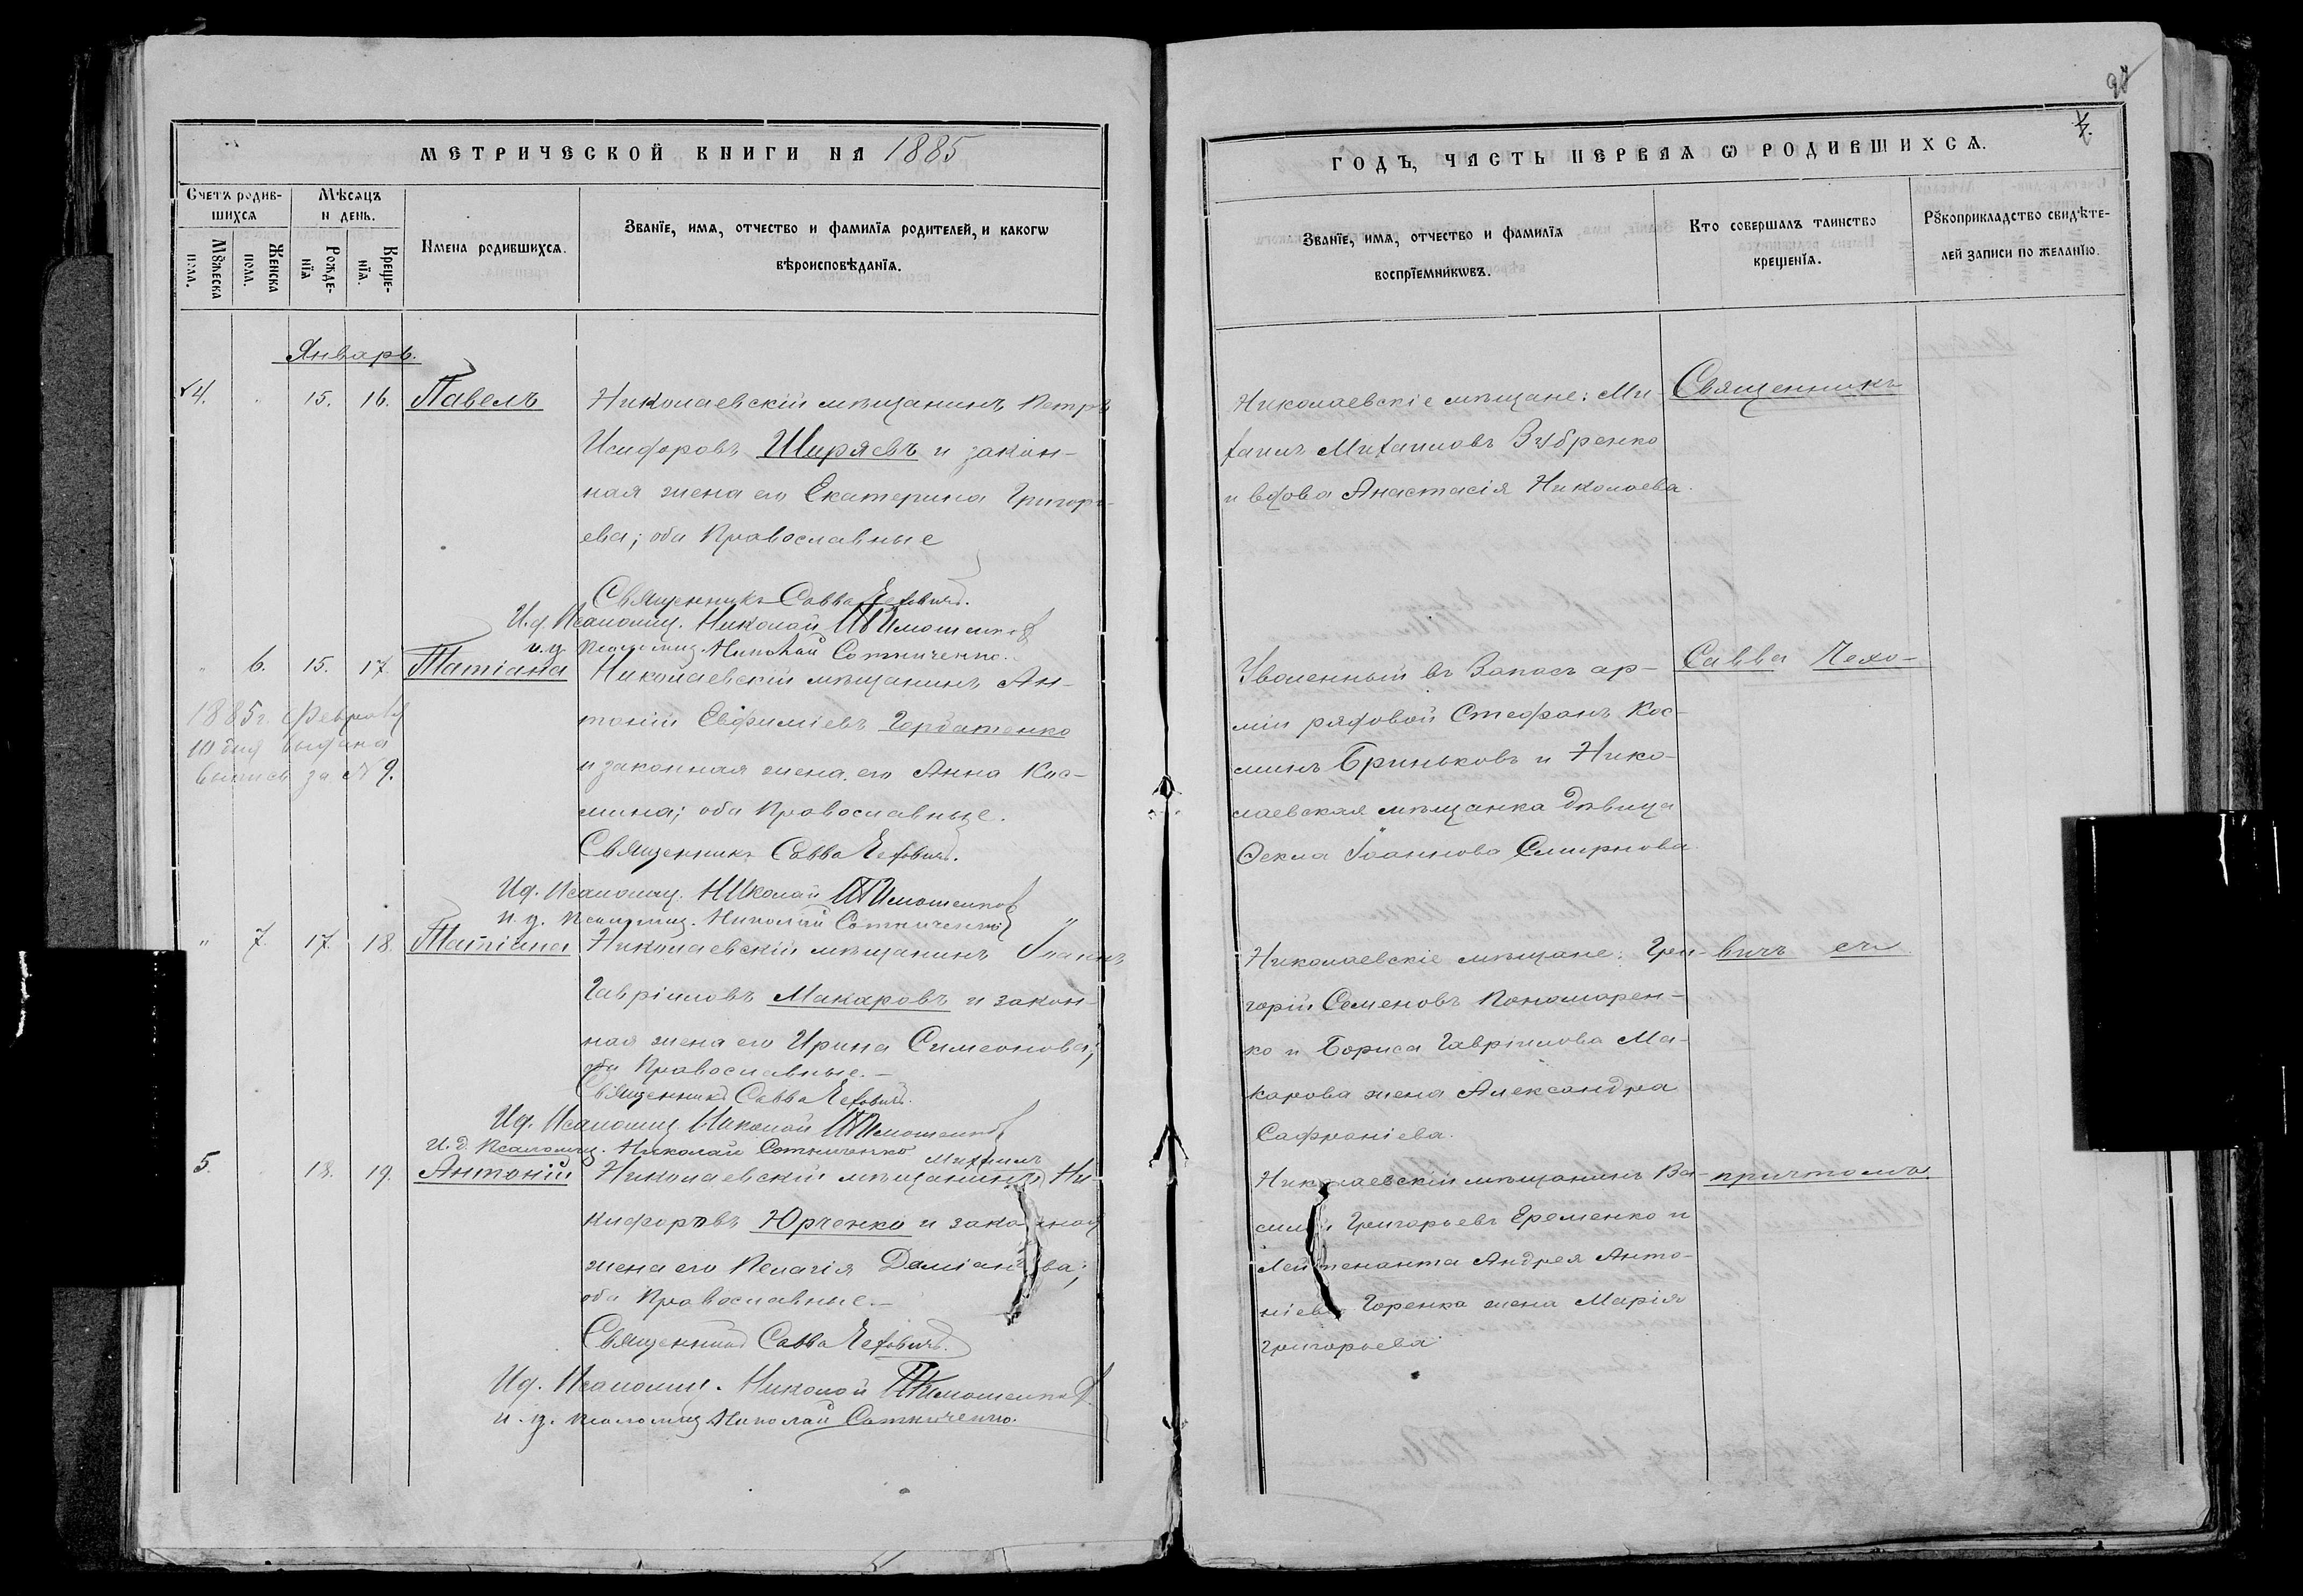 МЕТРИЧЕСКОЙ КНИГИ НА 1885
Счетъ родив-
шихся
Мѣсяцъ
и день.
Мꙋжеска
пола.
Женска
пола.
Рожде-
нїя
Креще-
нїя.
Имена родившихся.
Званїе, имя, отчество и фамилїя родителей, и какогѡ
вѣроисповѣданїя.
Январь.
4. 15. 16. Павелъ Николаевскій мѣщанинъ Петръ
Исидоровъ Ширяевъ и закон-
ная жена его Екатерина Григорь-
ева; оба Православные
Священникъ Савва Чеховичъ.
И.д. Псаломщ. Николай Тимошенков
и.д. Псаломщ. Николай Сотниченко.
" 6. 15. 17. Татіана Николаевскій мѣщанинъ Ан-
тоній Евфиміевъ Горбатенко
и законная жена его Анна Кос-
мина; оба Православные.
1885 г. Февраля
10 дня выдана
выпись за № 9.
Священникъ Савва Чеховичъ.
Ид. Псаломщ. Николай Тимошенков
и.д. Псаломщ. Николай Сотниченко
" 7. 17. 18. Татіана Николаевскій мѣщанинъ Іоаннъ
Гавріиловъ Макаровъ и закон-
ная жена его Ирина Симеонова;
оба Православные.—
Священникъ Савва Чеховичъ.
Ид. Псаломщ. Николай Тимошенков
И.д. Псаломщ. Николай Сотниченко
Михаилъ
5. 18. 19. Антоній Николаевскій мѣщанинъ Ни-
кифоровъ Юрченко и законная
жена его Пелагія Даміанова;
оба Православные.—
Священникъ Савва Чеховичъ.
Ид. Псаломщ. Николай Тимошенков
и.д. Псаломщ Николай Сотниченко.
ГОДЪ, ЧАСТЬ ПЕРВАЯ Ѡ РОДИВШИХСЯ.
Званїе, имя, отчество и фамилїя
воспрїемникѡвъ.
Кто совершалъ таинство
крещенїя.
Рꙋкоприкладство свидѣте-
лей записи по желанїю.
Николаевскіе мѣщане: Ми-
хаилъ Михаиловъ Зубренко
и вдова Анастасія Николаева.
Священникъ
Уволенный въ Запасъ ар-
міи рядовой Стефанъ Кос-
минъ Бриньковъ и Нико-
лаевская мѣщанка дѣвица
Ѳекла Іоаннова Смирнова.
Савва Чехо-
Николаевскіе мѣщане: Гри-
горій Семеновъ Пономарен-
ко и Бориса Гавріилова Ма-
карова жена Александра
Сафроніева.
вичъ съ
Николаевскій мѣщанинъ Ва-
силій Григорьевъ Еременко и
Лейтенанта Андрея Анто-
ніева Горенка жена Марія
Григорьева
причтомъ.